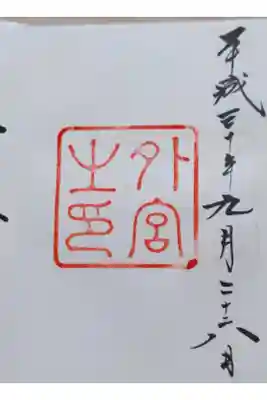 平成三十年九月二十八日
外宮
之印